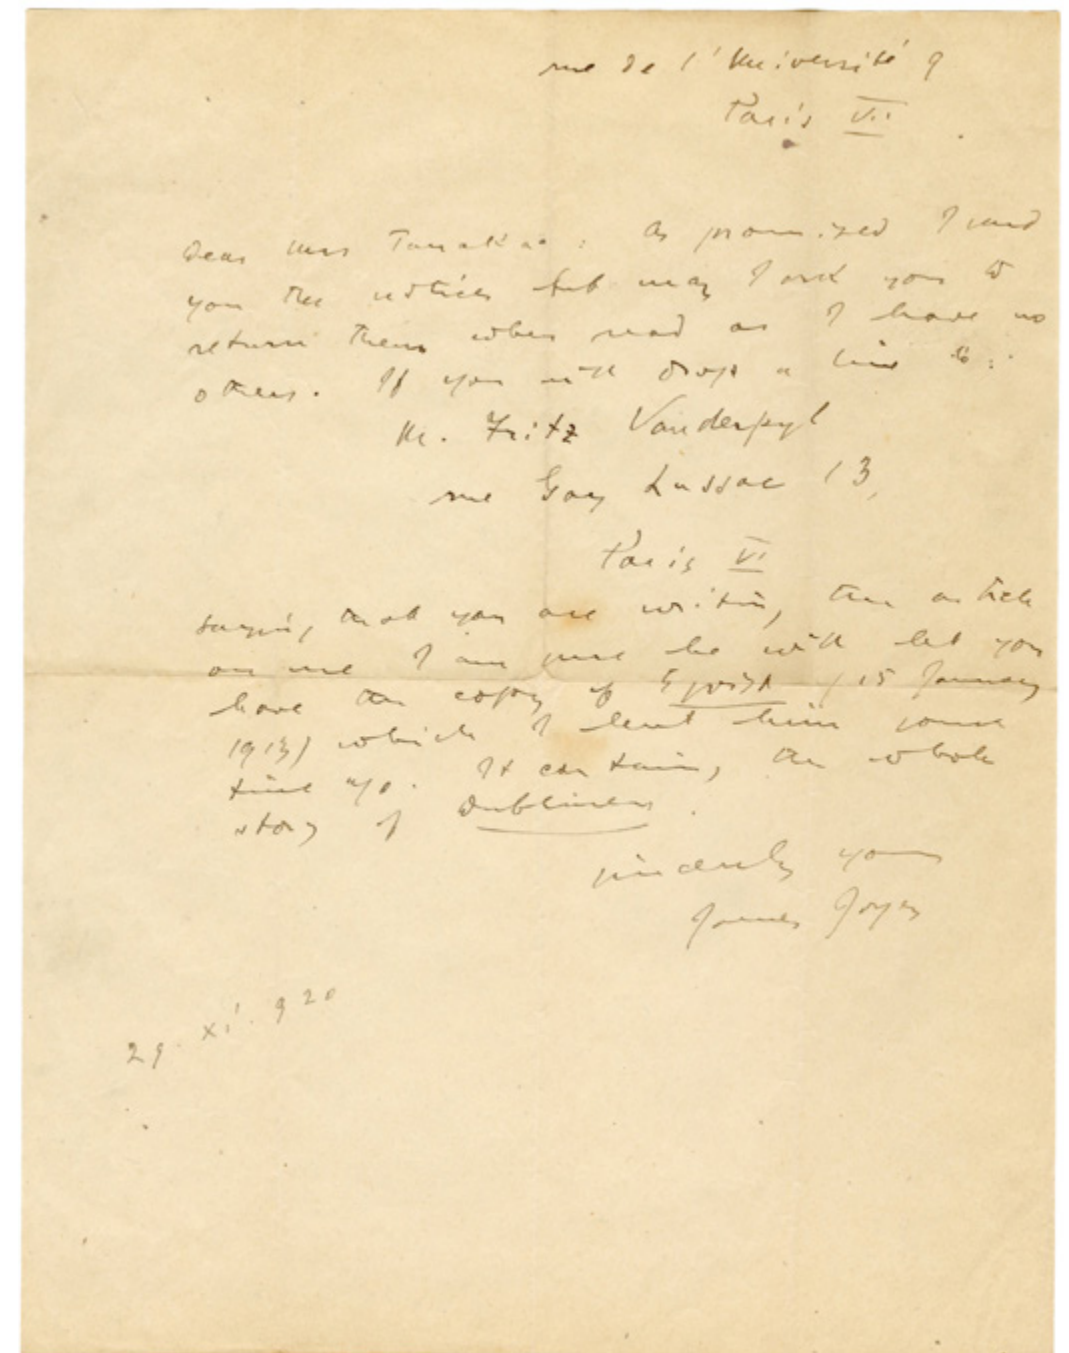 rue de l'Université 9
Paris VII
Dear Mrs Tanakas: As promised I send
you the notices but may I ask you to
return them when read as I have no
others. If you will drop a line to:
M. Fritz Vanderpyl
rue Gay Lussac 13,
Paris VI
saying that you are writing the article
on me I am sure he will let you
have the copy of Egoist (15 January
1913) which I lent him some
time ago. It contains the whole
story of Dubliners.
sincerely yours
James Joyce
29. xi. 920